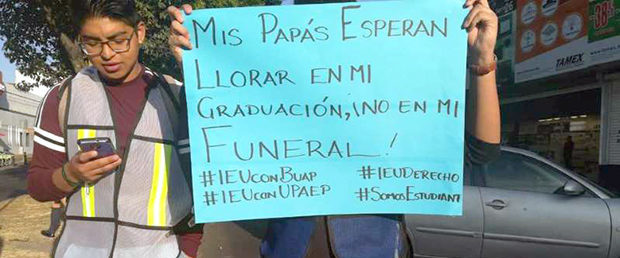 Mis Papás Esperan
Llorar en mi
Graduación,¡No en mi
Funeral!
#IEUconBuap #IEUDerecho
#IEUconUPAEP #SomosEstudiant
TAMEX